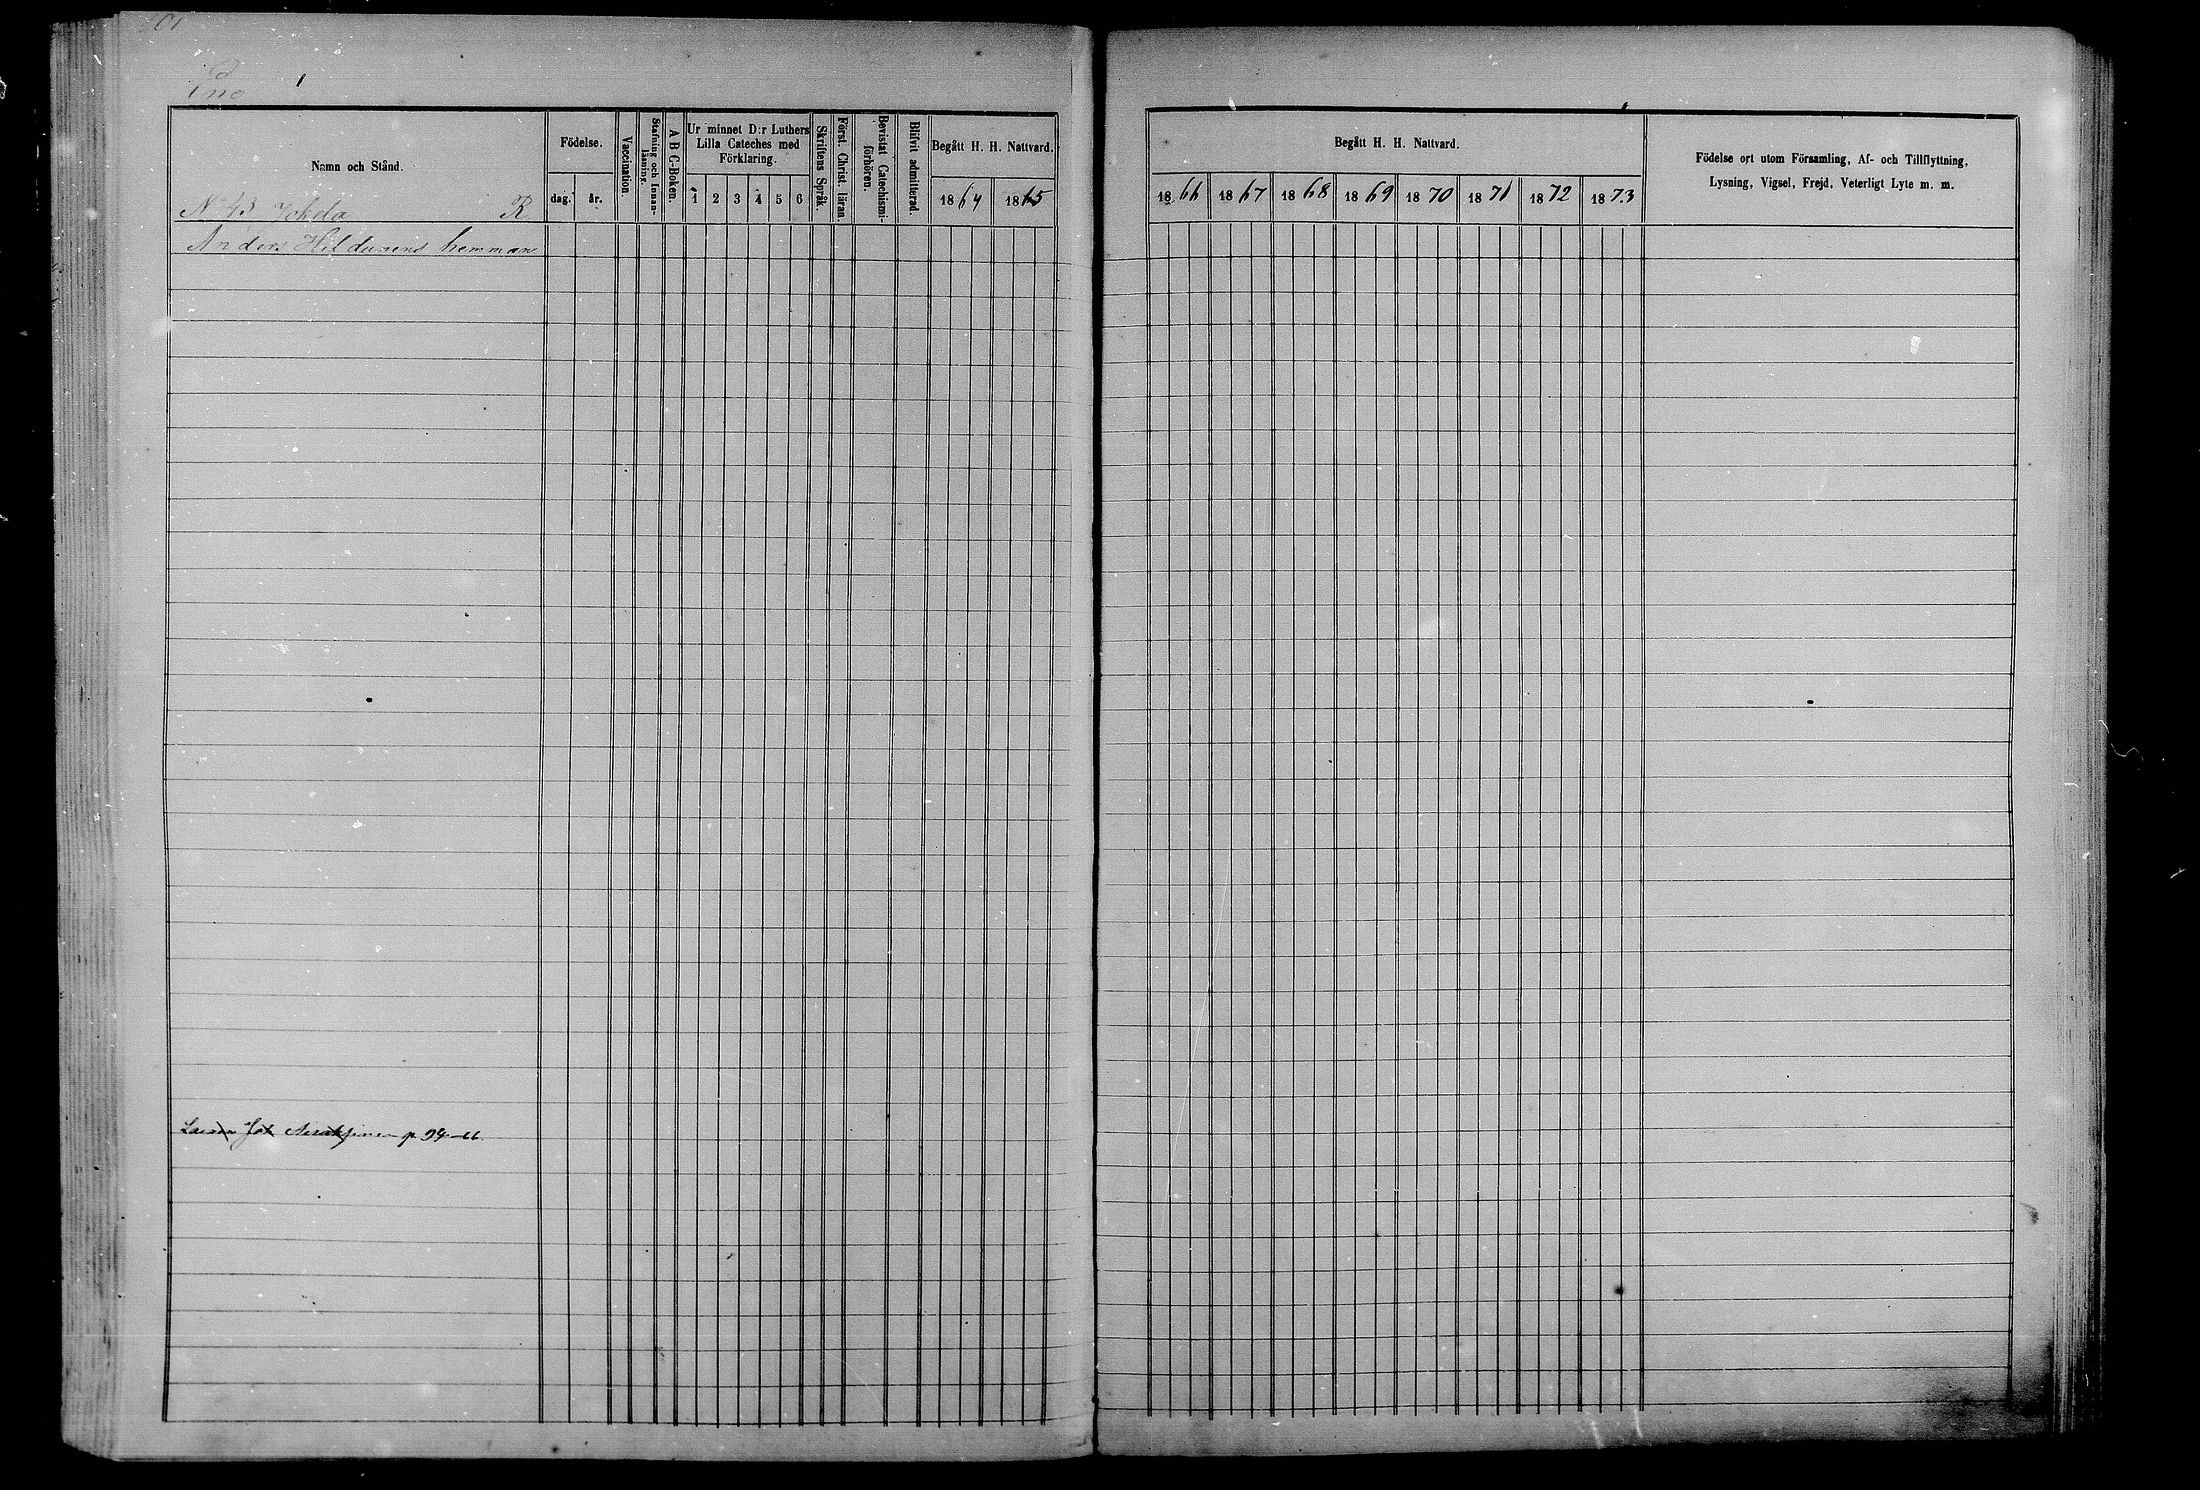 Eno
Namn och Stånd.
Födelse.
dag.
år.
Vaccination.
Stafning och Innan-
läsning.
A B C-Boken.
Ur minnet D:r Luthers
Lilla Cateches med
Förklaring.
1 2 3 4 5 6
Skriftens Språk.
Först. Christ. läran.
Bevistat Catechismi-
förhören.
Blifvit admitterad.
Begått H. H. Nattvard.
1864 1865
No 43 Jokela R
Anders Hildunens hemman
p 94-66
Begått H. H. Nattvard.
1866 1867 1868 1869 1870 1871 1872 1873
Födelse ort utom Församling, Af- och Tillflyttning,
Lysning, Vigsel, Frejd, Veterligt Lyte m. m.